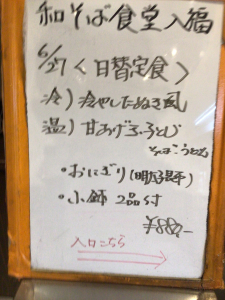 和そば食堂入福
6/27<日替定食>
冷)冷やしたぬき風
温)甘あげ玉とじ
そばorうどん
・おにぎり(明太子)
・小鉢 2品付
¥880-
入口こちら